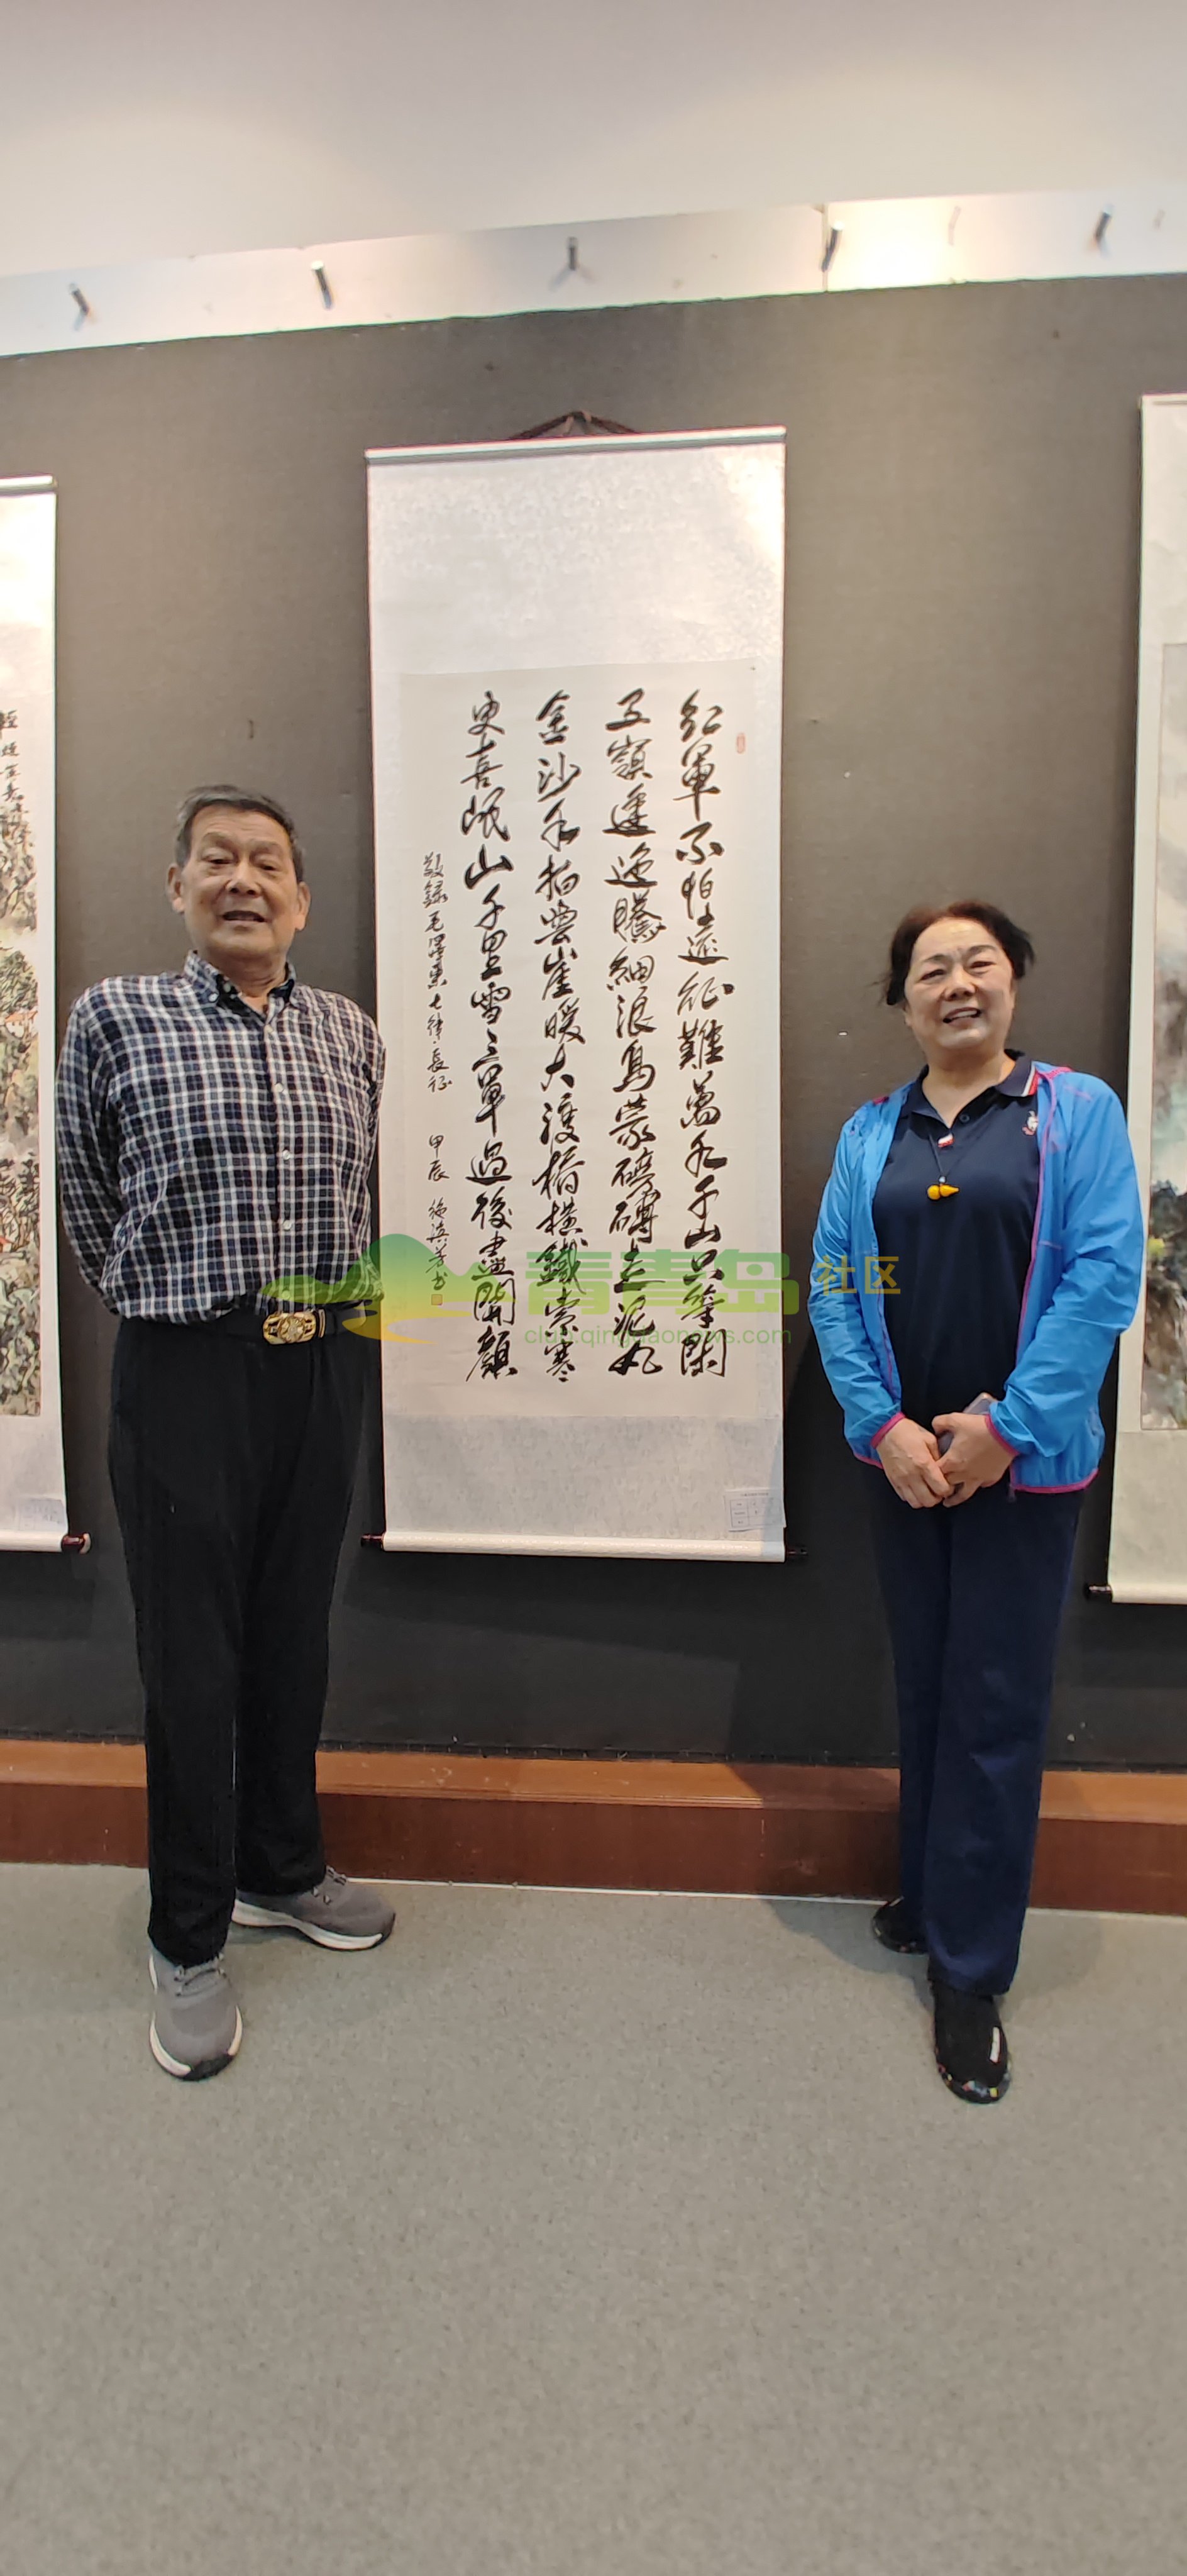 红軍不怕遠征難萬水千山只等閑
五嶺逶迤騰細浪烏蒙磅礴走泥丸
金沙水拍雲崖暖大渡橋橫鐵索寒
更喜岷山千里雪三軍過後盡開顏
敬錄毛澤東七律·長征
甲辰
青青岛社区
club.qingdaonews.com